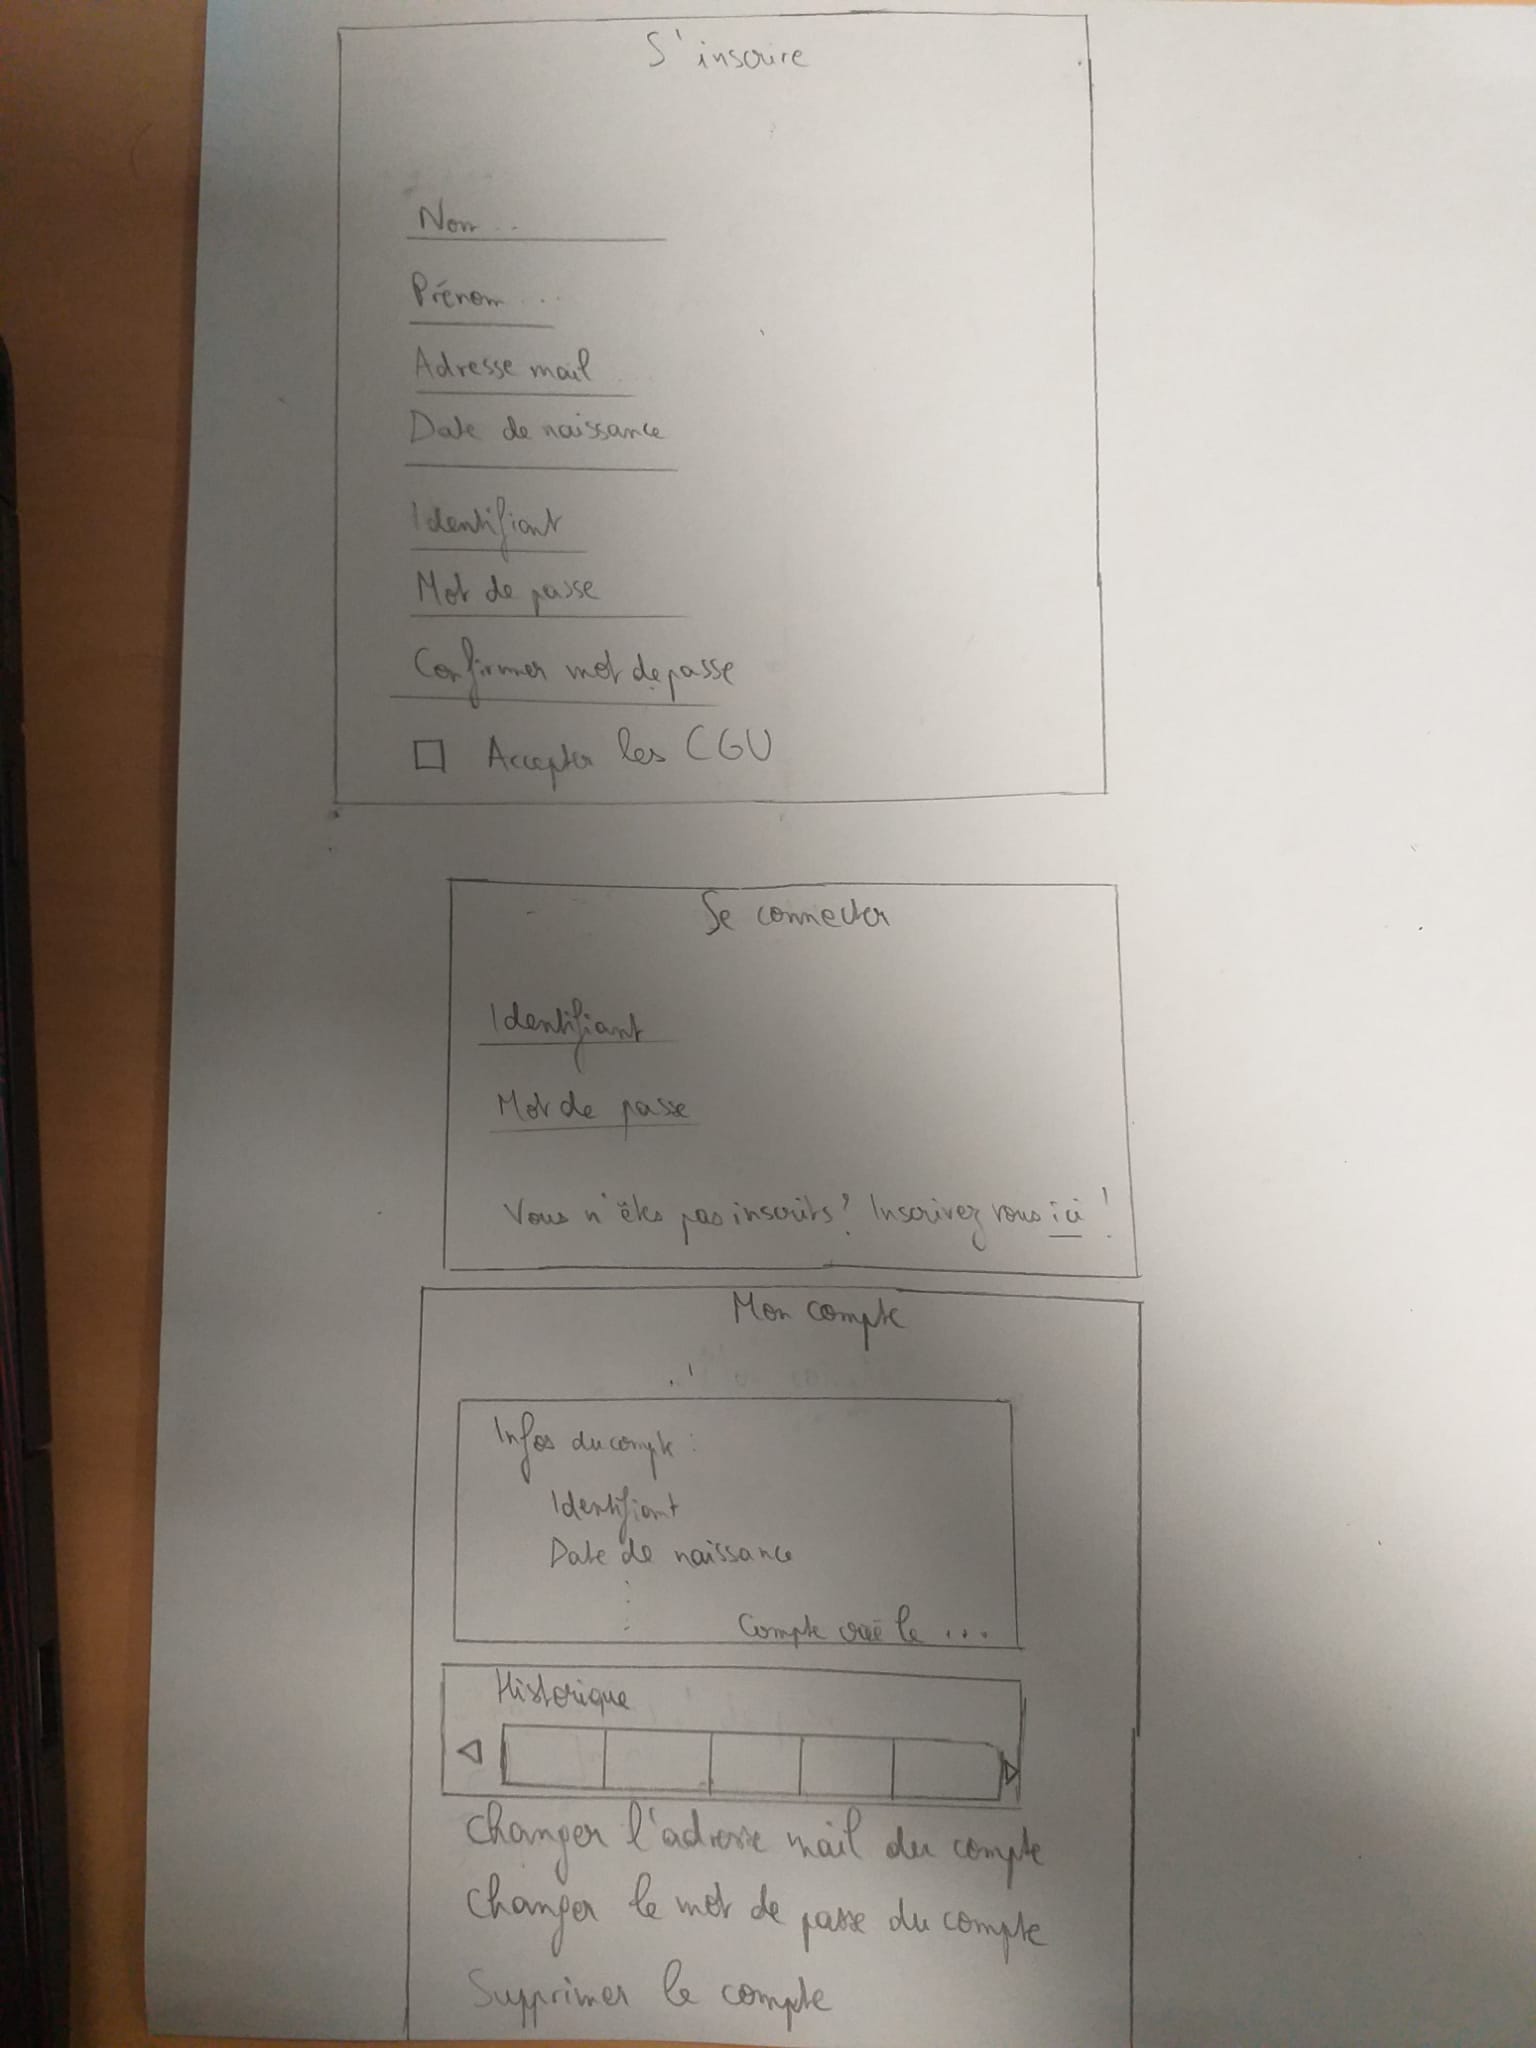 S'inscrire
Nom ...
Prénom ...
Adresse mail
Date de naissance
Identifiant
Mot de passe
Confirmer mot de passe
Accepter les CGU
Se connecter
Identifiant
Mot de passe
Vous n'êtes pas inscrits? Inscrivez vous ici !
Mon compte
Infos du compte :
Identifiant
Date de naissance
Compte créé le ...
Historique
Changer l'adresse mail du compte
Changer le mot de passe du compte
Supprimer le compte